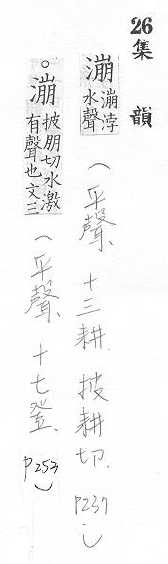 26
集韻
漰 漰浡
水聲
(平聲、十三耕.披耕切. P237.)
○漰 披朋切水激
有聲也文三
(平聲、十七登. P253)